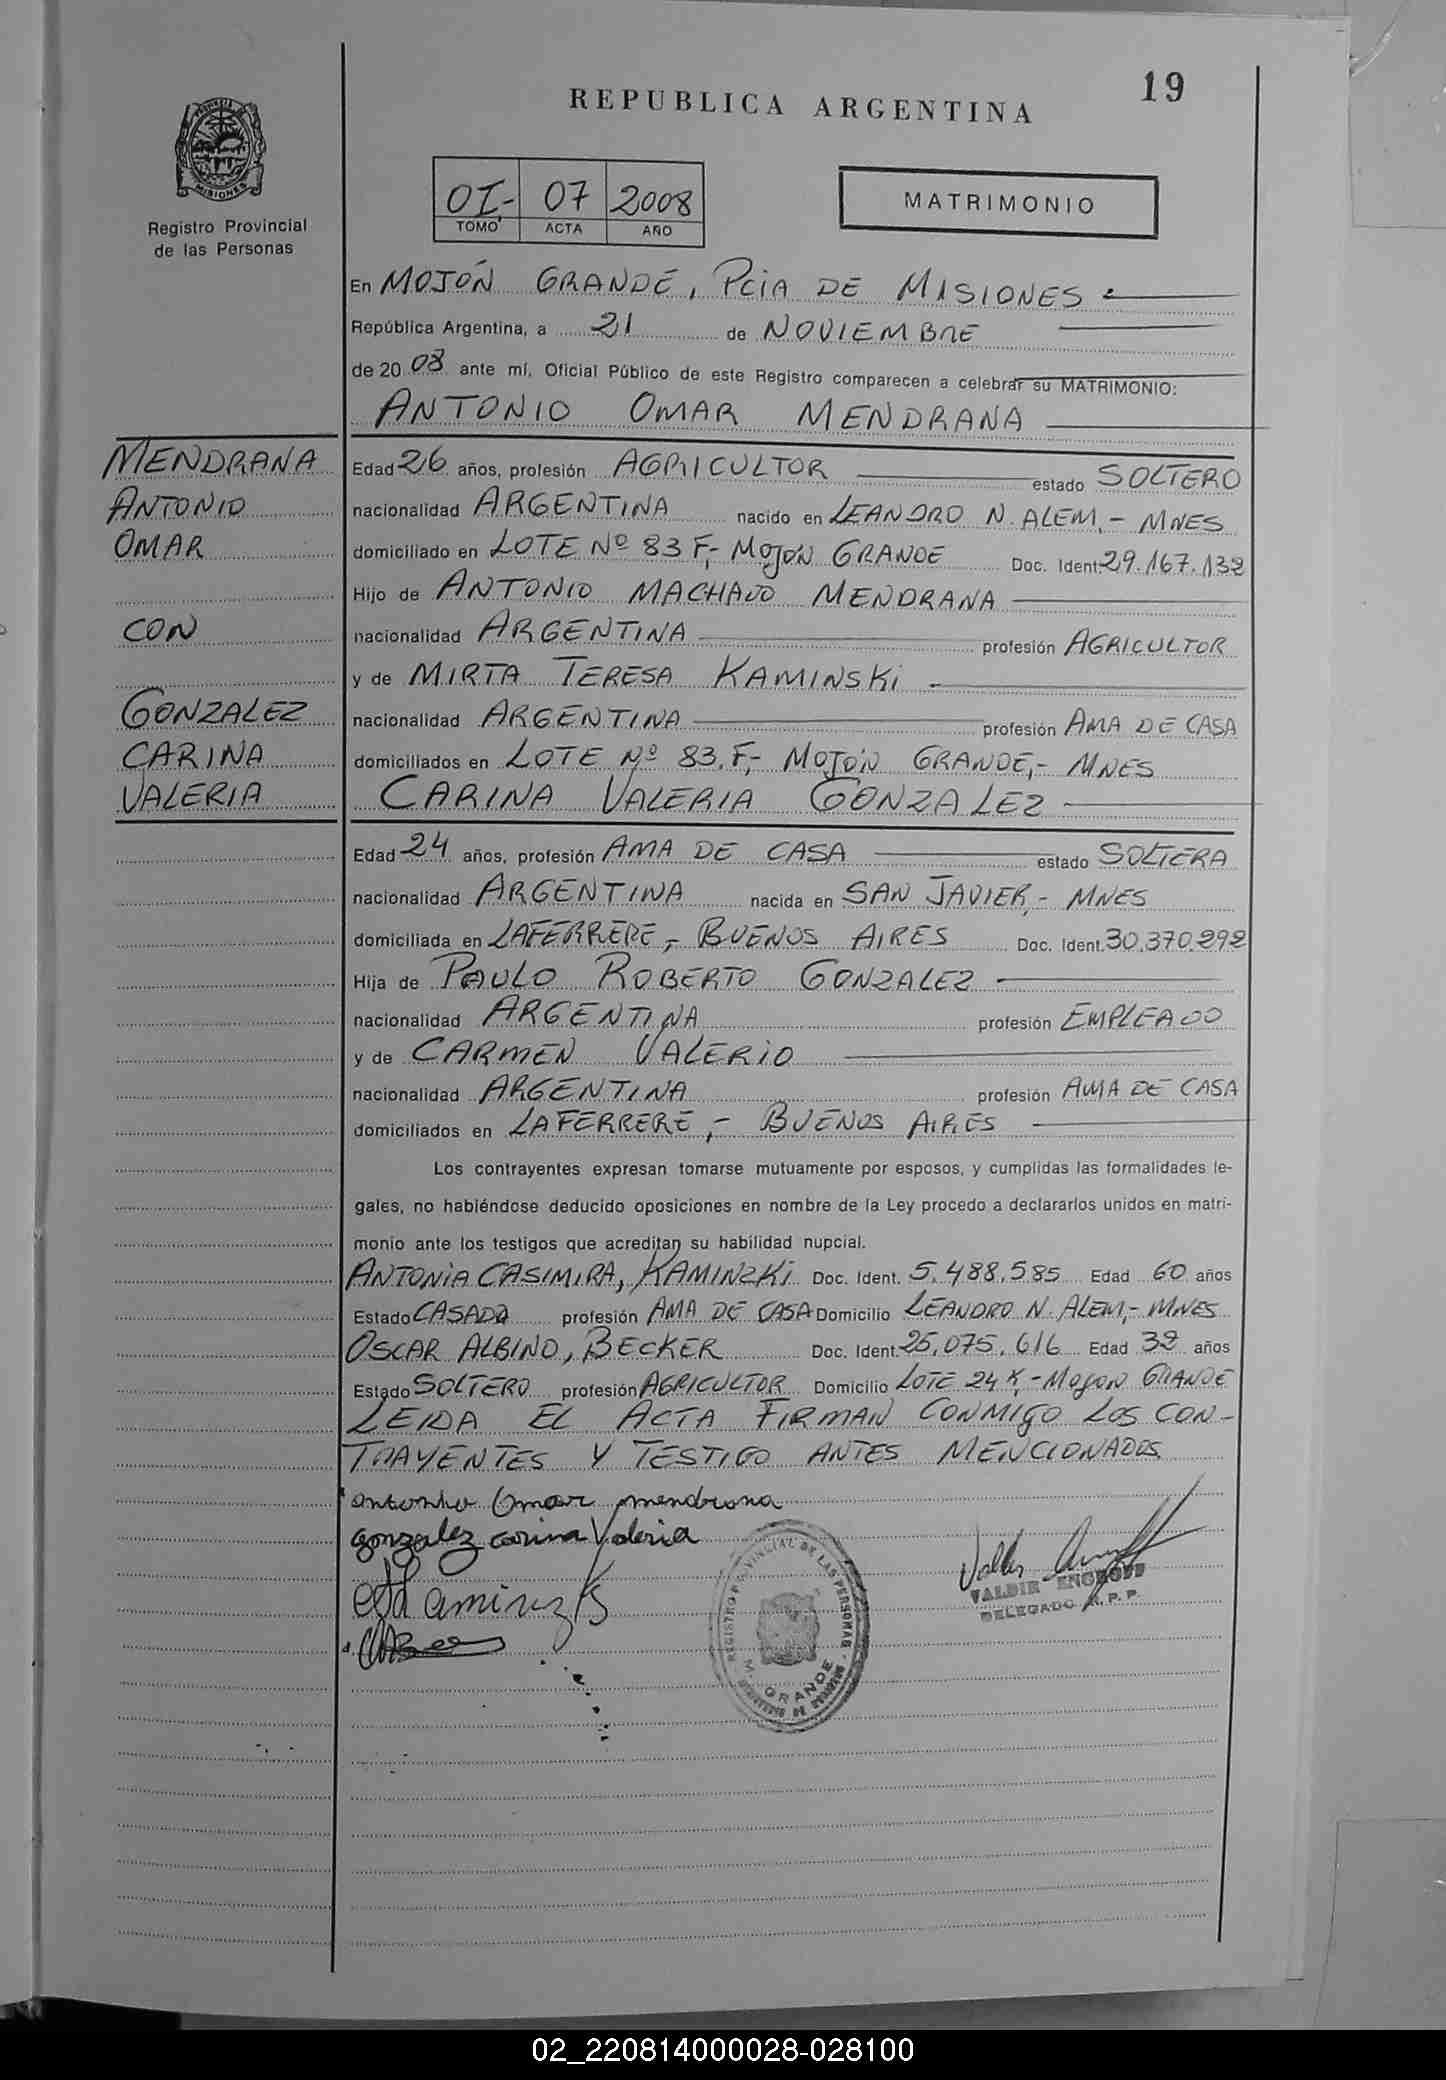 19
REPUBLICA ARGENTINA
MISIONES
Registro Provincial
de las Personas
OI,- 07 2008
TOMO ACTA AÑO
MATRIMONIO
En MOJÓN GRANDE, PCIA DE MISIONES
República Argentina, a 21 de NOVIEMBRE
de 20 08 ante mí, Oficial Público de este Registro comparecen a celebrar su MATRIMONIO:
ANTONIO OMAR MENDRANA
MENDRANA
ANTONIO
OMAR
CON
GONZALEZ
CARINA
VALERIA
Edad 26 años, profesión AGRICULTOR estado SOLTERO
nacionalidad ARGENTINA nacido en LEANDRO N. ALEM,- MNES
domiciliado en LOTE Nº 83 F,- MOJÓN GRANDE Doc. Ident. 29.167.132
Hijo de ANTONIO MACHADO MENDRANA
nacionalidad ARGENTINA profesión AGRICULTOR
y de MIRTA TERESA KAMINSKI
nacionalidad ARGENTINA profesión AMA DE CASA
domiciliados en LOTE Nº 83.F,- MOJÓN GRANDE,- MNES
CARINA VALERIA GONZALEZ
Edad 24 años, profesión AMA DE CASA estado SOLTERA
nacionalidad ARGENTINA nacida en SAN JAVIER,- MNES
domiciliada en LAFERRERE,- BUENOS AIRES Doc. Ident. 30.370.292
Hija de PAULO ROBERTO GONZALEZ
nacionalidad ARGENTINA profesión EMPLEADO
y de CARMEN VALERIO
nacionalidad ARGENTINA profesión AMA DE CASA
domiciliados en LAFERRERE,- BUENOS AIRES
Los contrayentes expresan tomarse mutuamente por esposos, y cumplidas las formalidades le-
gales, no habiéndose deducido oposiciones en nombre de la Ley procedo a declararlos unidos en matri-
monio ante los testigos que acreditan su habilidad nupcial.
ANTONIA CASIMIRA, KAMINZKI Doc. Ident. 5.488.585 Edad 60 años
Estado CASADA profesión AMA DE CASA Domicilio LEANDRO N. ALEM,- MNES
OSCAR ALBINO, BECKER Doc. Ident. 25.075.616 Edad 32 años
Estado SOLTERO profesión AGRICULTOR Domicilio LOTE 24 - MOJON GRANDE
LEIDA EL ACTA FIRMAN CONMIGO LOS CON-
TRAYENTES Y TESTIGO ANTES MENCIONADOS
Antonho Omar mendrana
gonzalez carina Valeria
REGISTRO PROVINCIAL DE LAS PERSONAS
M. GRANDE
VALDIR
DELEGADO R.P.P.
02_220814000028-028100